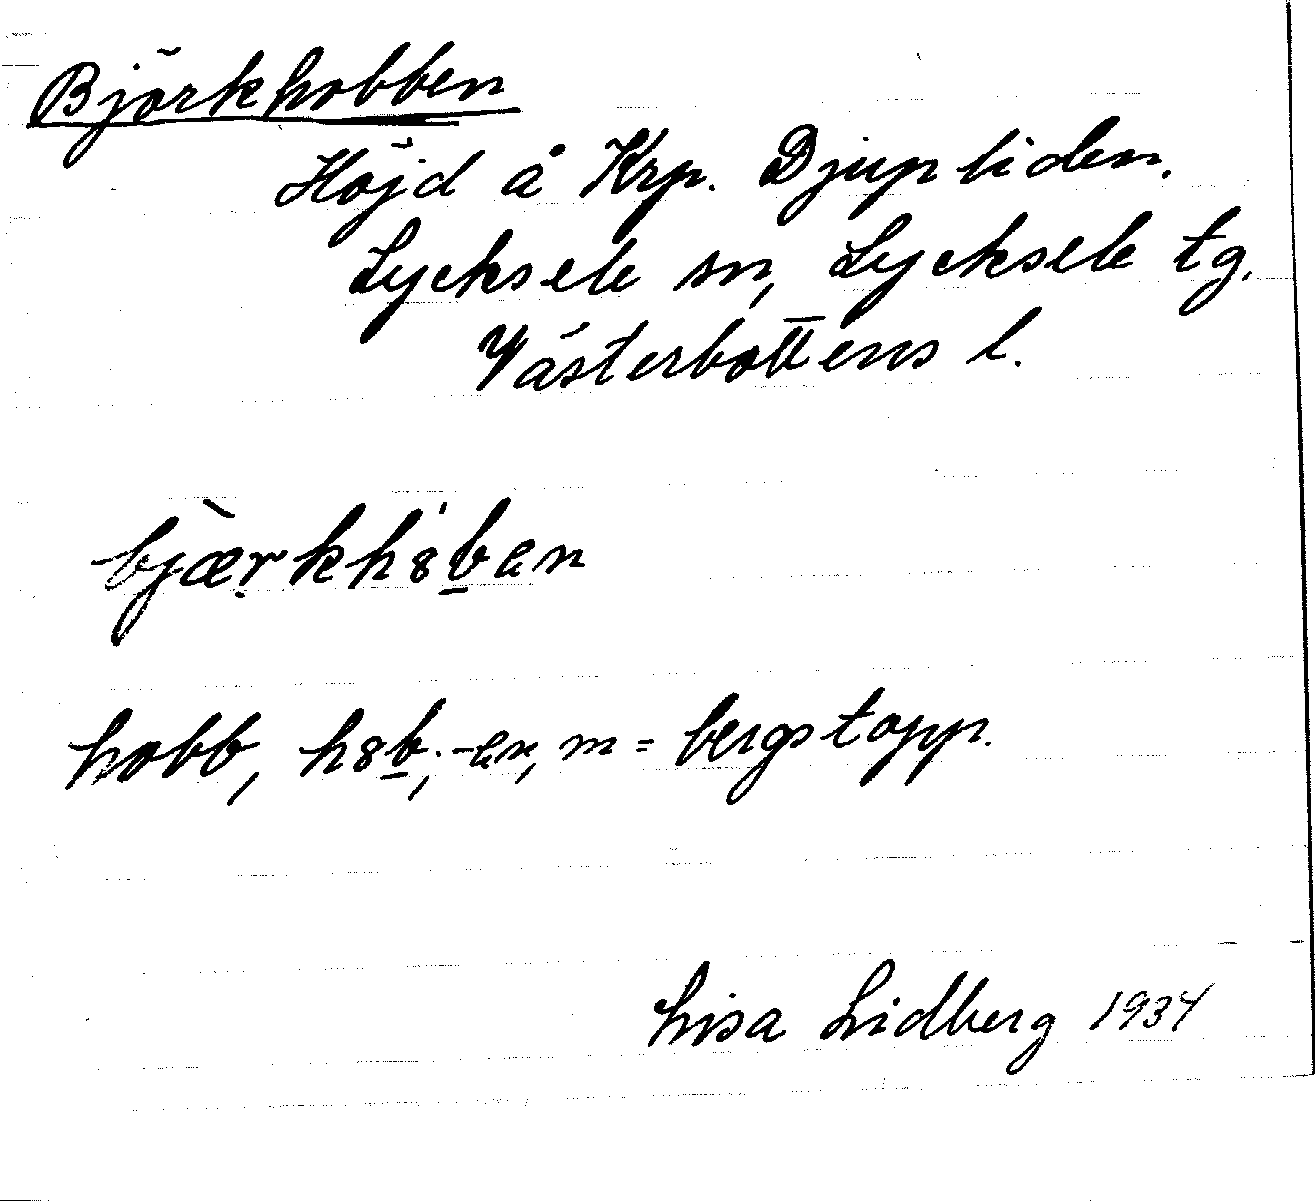 Björkhobben
Höjd å Krp. Djupliden.
Lycksele sn, Lycksele tg.
Västerbottens l.
bjæ̀rkh8́b̲en
hobb, h8b̲; -en, m = bergstopp.
Lisa Lidberg 1934